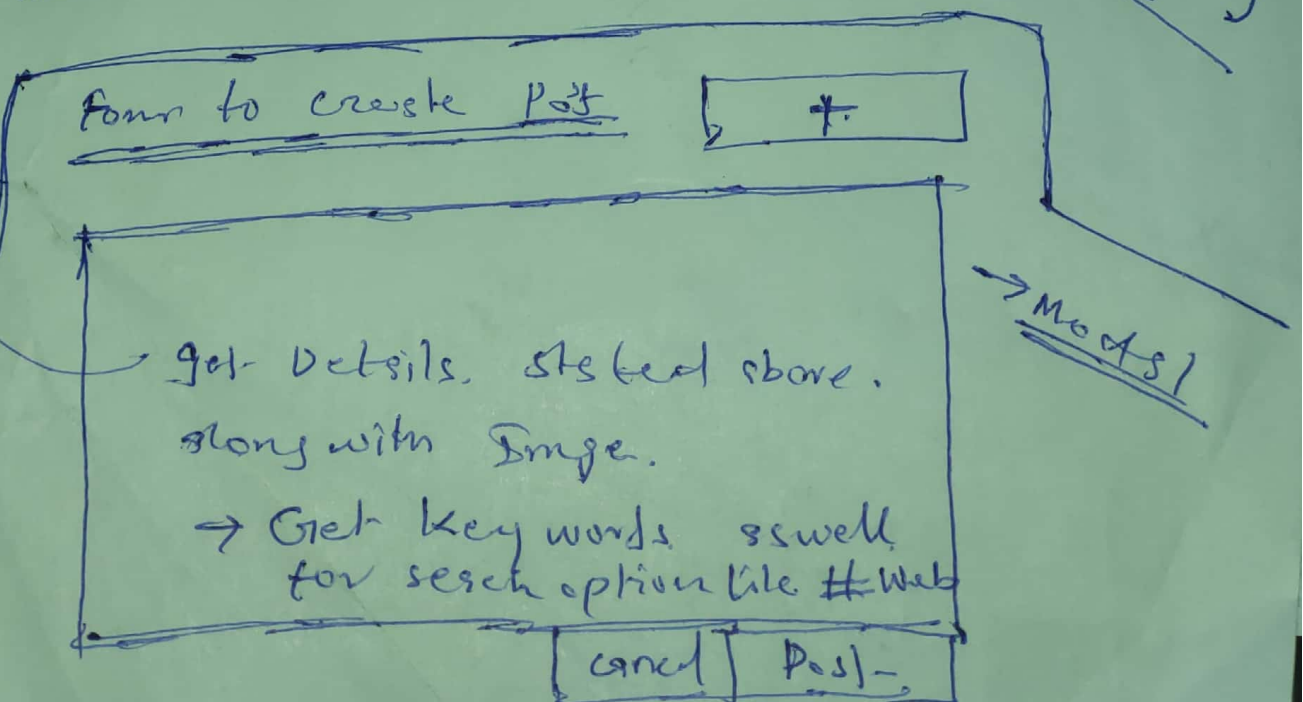 Form to create Post
+
→ Modal
get Details. stated above.
along with Image.
→ Get keywords aswell
for search option like #Web
cancel
Post